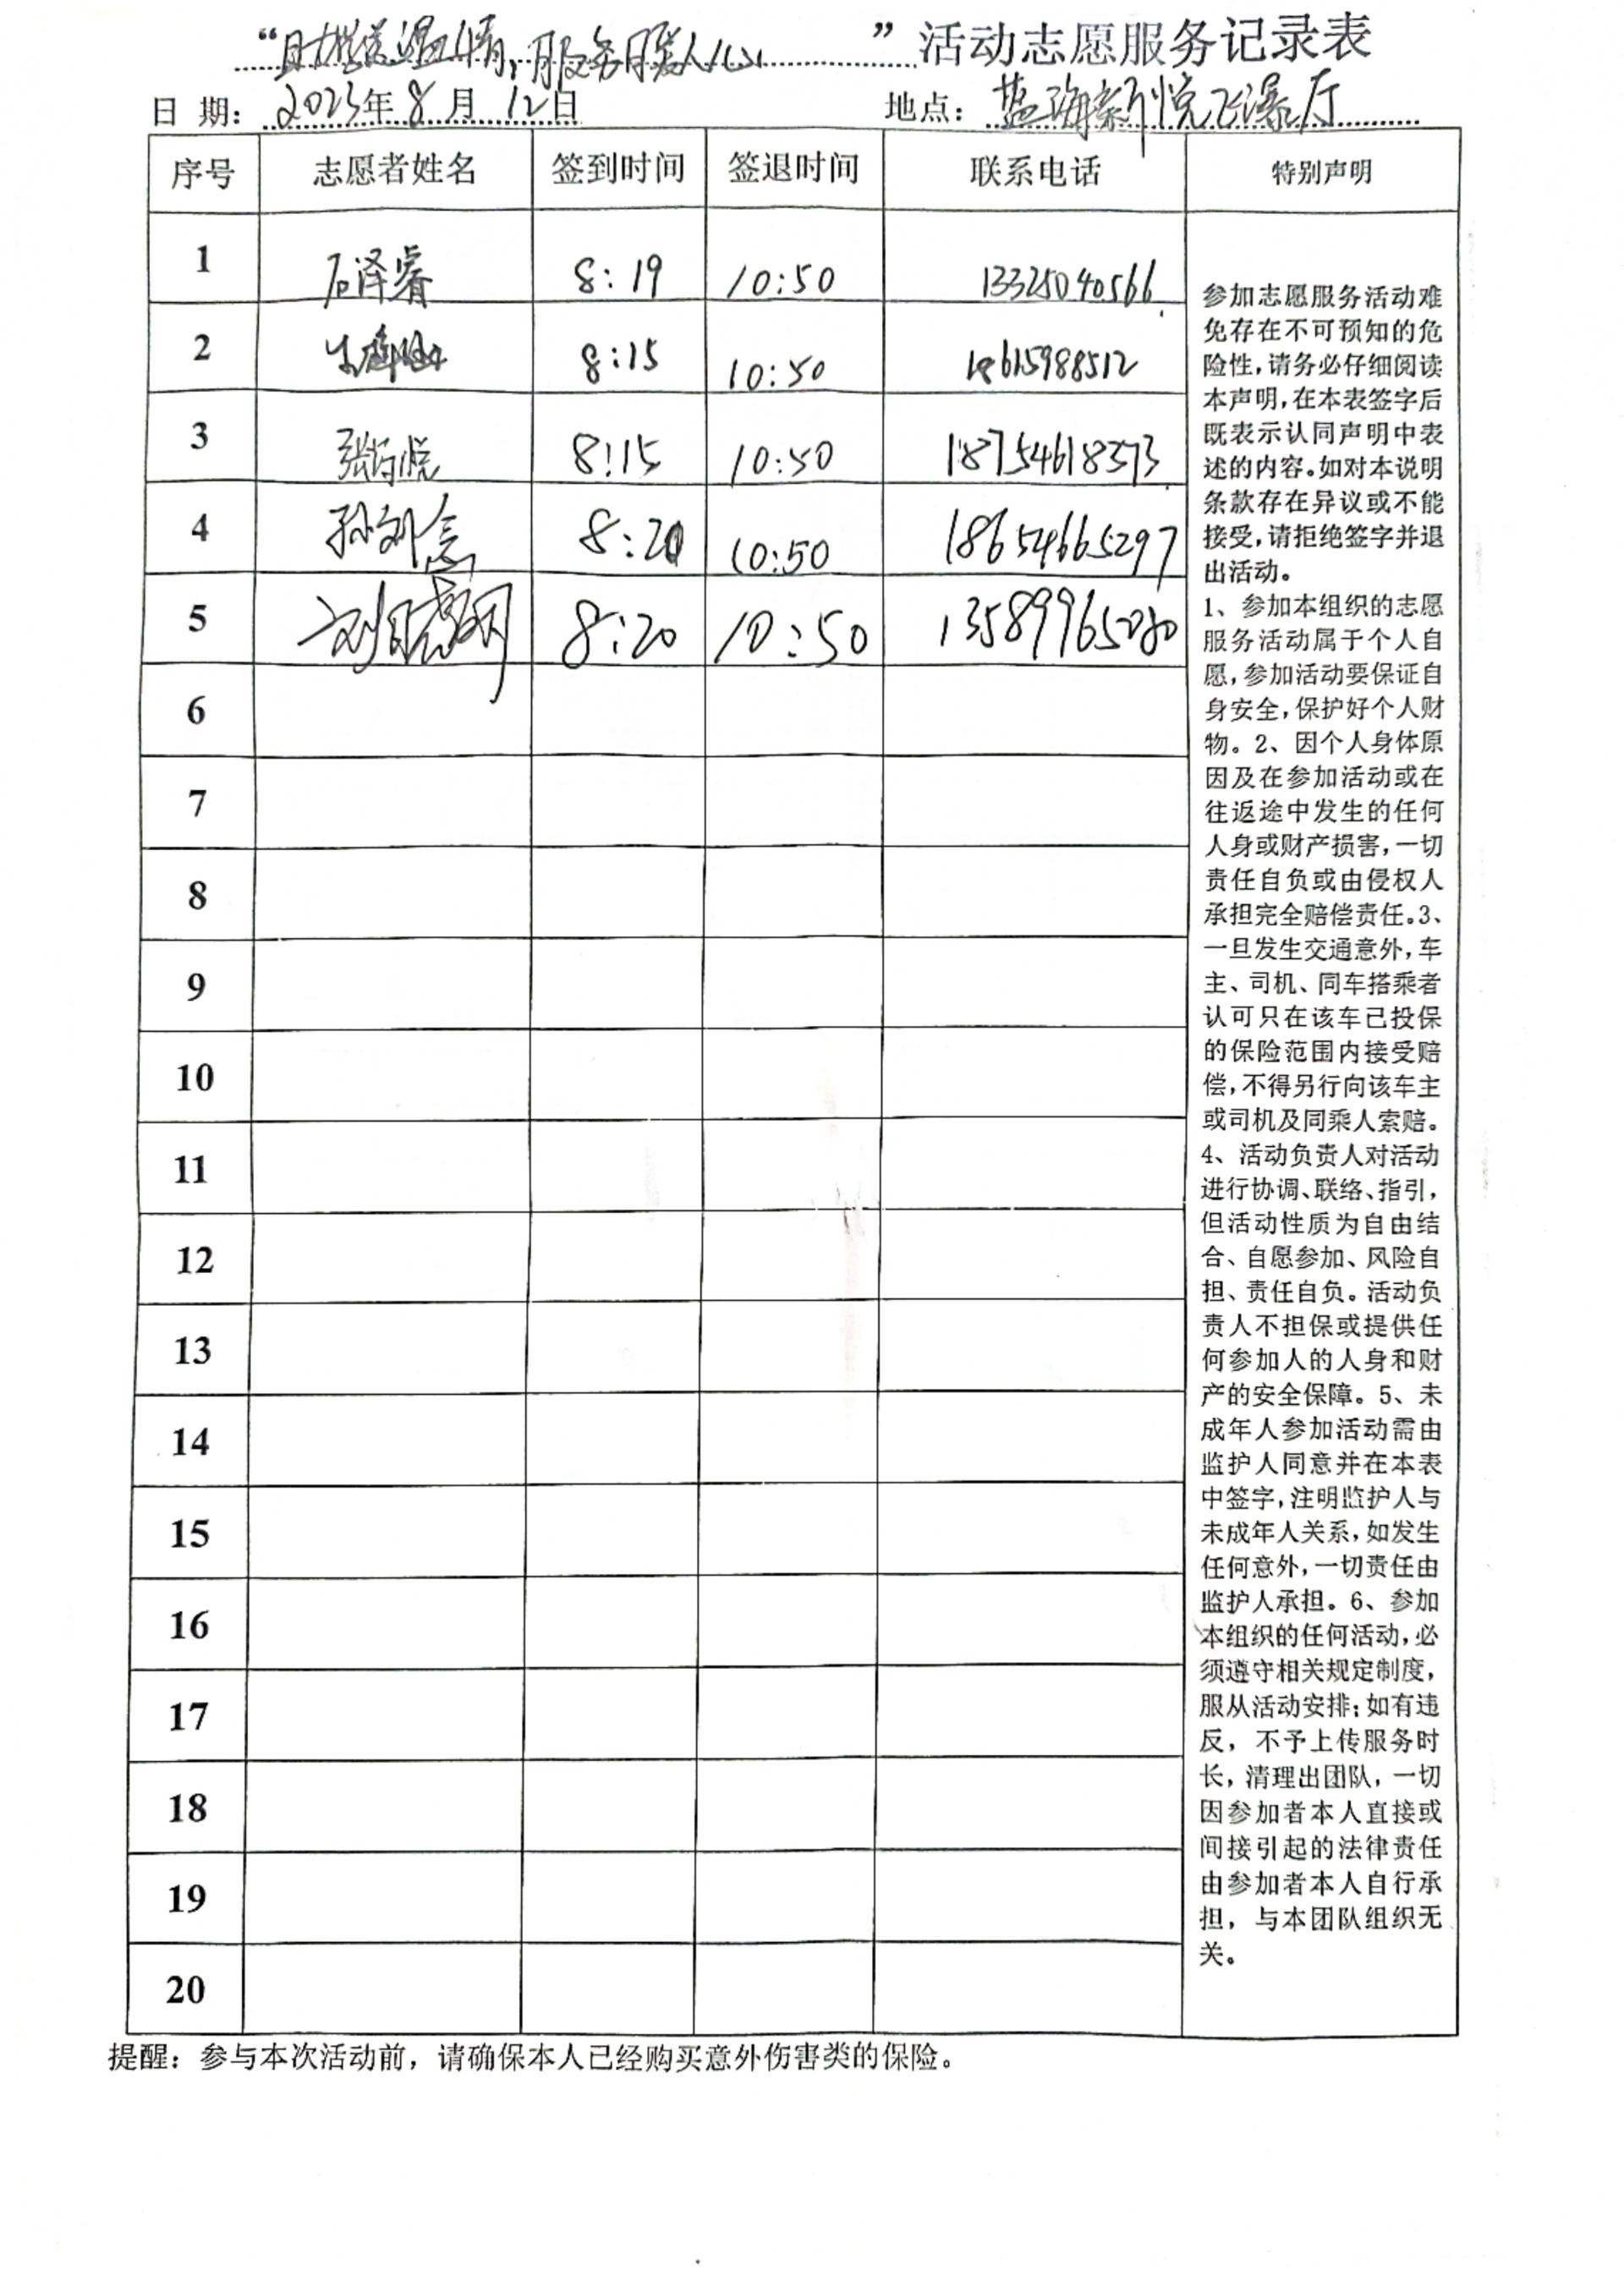 “ 送温情，服务暖人心 ”活动志愿服务记录表
日 期： 2023年 8 月 12日 地点： 蓝海新悦飞瀑厅
序号 志愿者姓名 签到时间 签退时间 联系电话 特别声明
1 石泽睿 8:19 10:50 13325040566
2 8:15 10:50 18615988512
3 悦 8:15 10:50 18754618573
4 孙刘念 8:20 10:50 18654665297
5 刘晓 8:20 10:50 13589965080
6
7
8
9
10
11
12
13
14
15
16
17
18
19
20
参加志愿服务活动难
免存在不可预知的危
险性，请务必仔细阅读
本声明，在本表签字后
既表示认同声明中表
述的内容。如对本说明
条款存在异议或不能
接受，请拒绝签字并退
出活动。
1、参加本组织的志愿
服务活动属于个人自
愿，参加活动要保证自
身安全，保护好个人财
物。2、因个人身体原
因及在参加活动或在
往返途中发生的任何
人身或财产损害，一切
责任自负或由侵权人
承担完全赔偿责任。3、
一旦发生交通意外，车
主、司机、同车搭乘者
认可只在该车已投保
的保险范围内接受赔
偿，不得另行向该车主
或司机及同乘人索赔。
4、活动负责人对活动
进行协调、联络、指引，
但活动性质为自由结
合、自愿参加、风险自
担、责任自负。活动负
责人不担保或提供任
何参加人的人身和财
产的安全保障。5、未
成年人参加活动需由
监护人同意并在本表
中签字，注明监护人与
未成年人关系，如发生
任何意外，一切责任由
监护人承担。6、参加
本组织的任何活动，必
须遵守相关规定制度，
服从活动安排；如有违
反，不予上传服务时
长，清理出团队，一切
因参加者本人直接或
间接引起的法律责任
由参加者本人自行承
担，与本团队组织无
关。
提醒：参与本次活动前，请确保本人已经购买意外伤害类的保险。